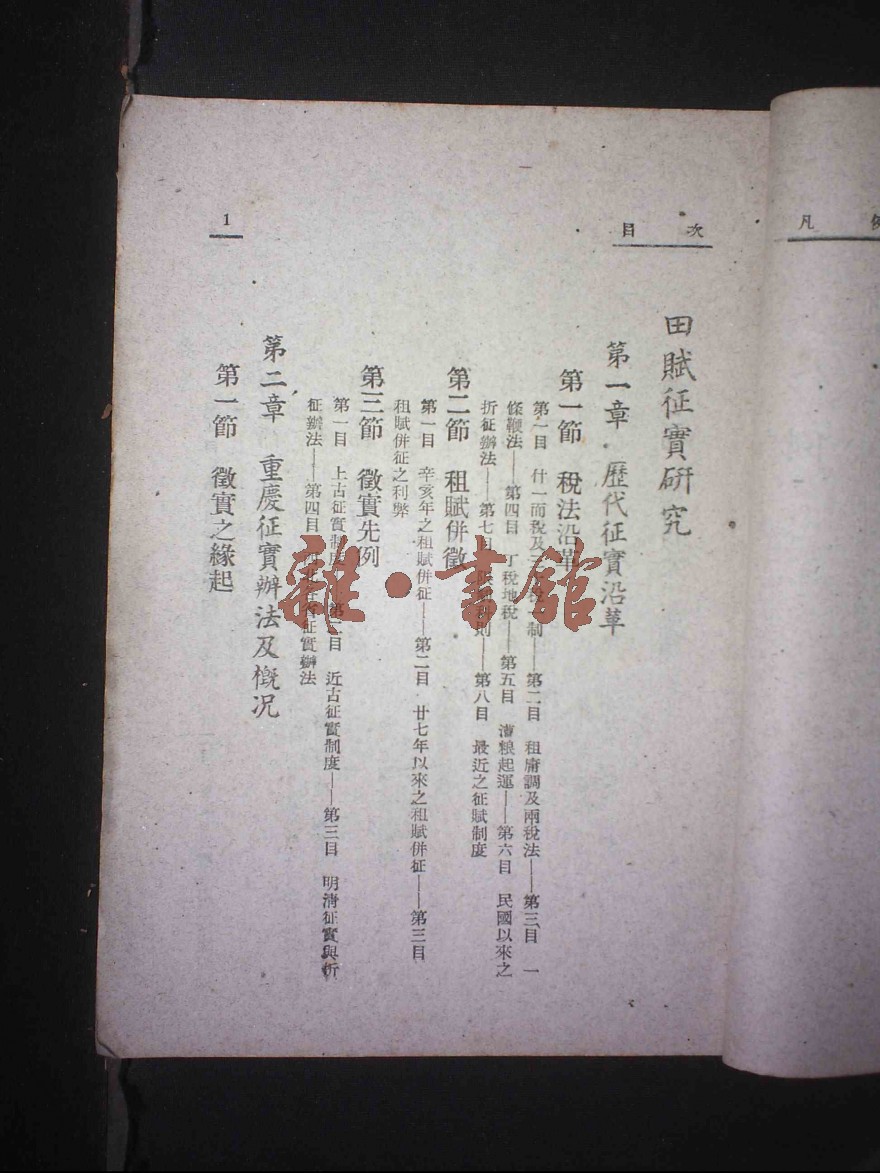 凡
目次
1
田賦征實研究
第一章 歷代征實沿革
第一節 稅法沿革
第一目 什一而稅及 制——第二目 租庸調及兩稅法——第三目 一
條鞭法——第四目 丁稅地稅——第五目 漕粮起運——第六目 民國以來之
折征辦法——第七目 則——第八目 最近之征賦制度
第二節 租賦併徵
第一目 辛亥年之租賦併征——第二目 廿七年以來之租賦併征——第三目
租賦併征之利弊
第三節 徵實先例
第一目 上古征實制度——第二目 近古征實制度——第三目 明清征實與折
征辦法——第四目 征實辦法
第二章 重慶征實辦法及概況
第一節 徵實之緣起
雜·書館